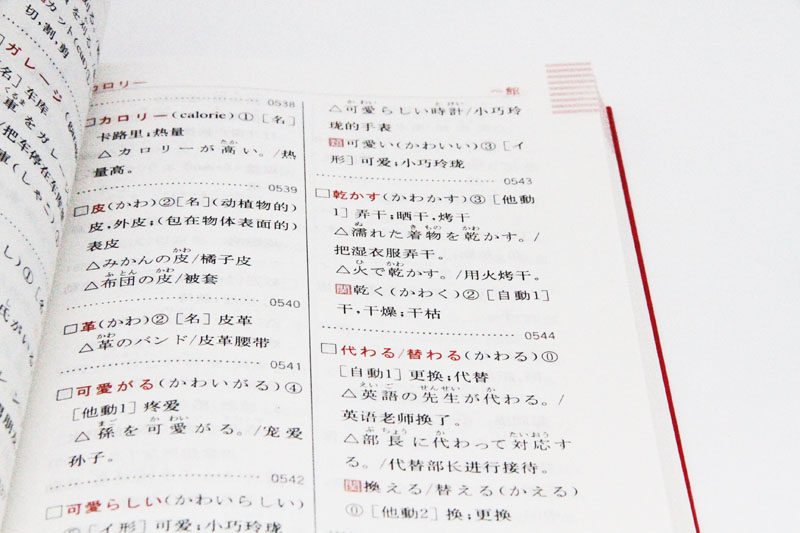 切,割,剪
ガレージ
[名]车库
車をガレージ
/把车停在车库
庫(しゃこ)
カロリー
0538
□カロリー(calorie)① [名]
卡路里;热量
△カロリーが高い。/热
量高。
0539
□皮(かわ)②[名](动植物的)
皮,外皮;(包在物体表面的)
表皮
△みかんの皮/橘子皮
△布団の皮/被套
0540
□革(かわ)②[名] 皮革
△革のバンド/皮革腰带
0541
□可愛がる(かわいがる)④
[他動1] 疼爱
△孫を可愛がる。/宠爱
孙子。
0542
□可愛らしい(かわいらしい)
⑤[イ形] 可爱;小巧玲珑
一館
△可愛らしい時計/小巧玲
珑的手表
可愛い(かわいい)③ [イ
形] 可爱;小巧玲珑
0543
□乾かす(かわかす)③ [他動
1] 弄干;晒干,烤干
△濡れた着物を乾かす。/
把湿衣服弄干。
△火で乾かす。/用火烤干。
関乾く(かわく)② [自動1]
干,干燥;干枯
0544
□代わる/替わる(かわる)⓪
[自動1] 更换;代替
△英語の先生が代わる。/
英语老师换了。
△部長に代わって対応す
る。/代替部长进行接待。
関換える/替える(かえる)
⓪ [他動2] 换;更换